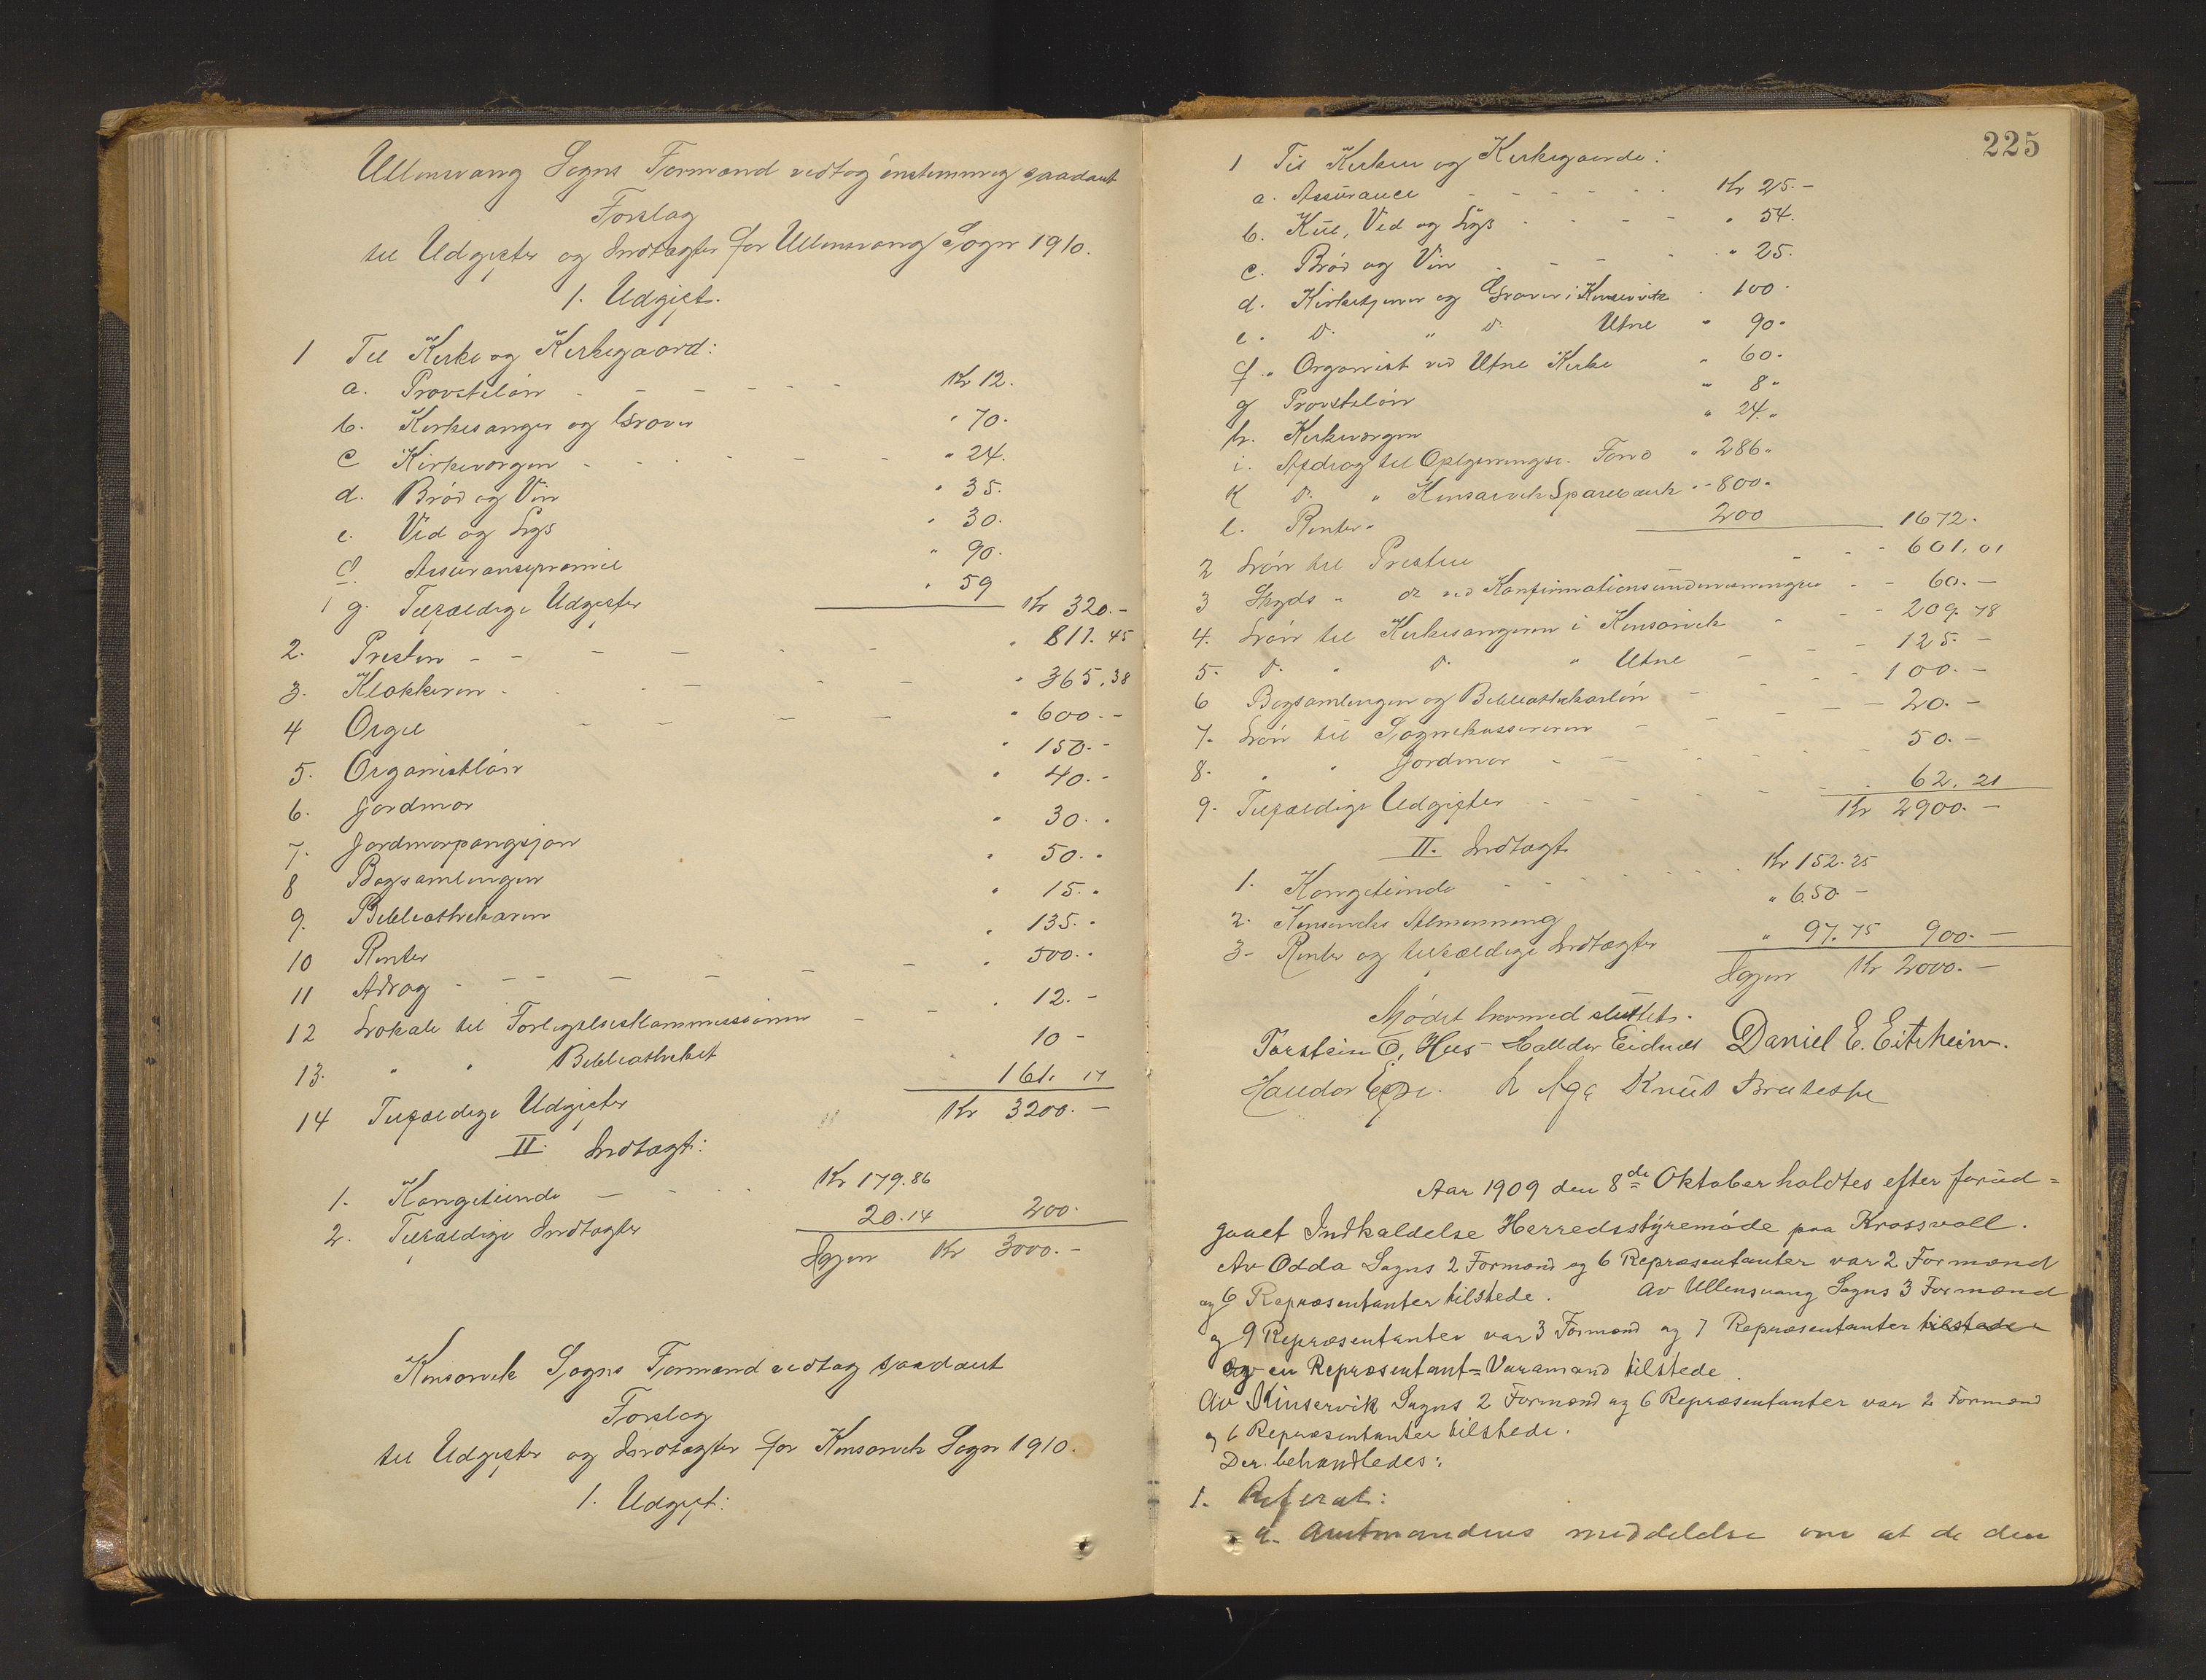 Ullensvang Sogns Formænd vedtog enstemmig saadant
Forslag
til Udgifter og Indtægter for Ullensvang Sogn 1910.
1. Udgift.
1 Til Kirke og Kirkegaard:
a. Provsteløn - - - - - - Kr 12.
b. Kirkesanger og Graver " 70.
c Kirkevergen - - - - - - " 24.
d. Brød og Vin " 35.
e. Ved og Lys " 30.
f. Assurancepræmie " 90.
g. Tilfældige Udgifter " 59 Kr 320.-
2. Presten - - - - - - " 811.45
3. Klokkeren - - - - - " 365.38
4 Orgel - - - - " 600.-
5. Organistløn " 150.-
6. Jordmor " 40.-
7. Jordmorpangsjon " 30.-
8 Bogsamlingen " 50.-
9. Bibliothekaren " 15.-
10 Renter " 135.-
11 Adrag - - - - - - " 500.-
12 Lokale til Forligelseskommissionen - - " 12.-
13. " " Bibliotheket 10 -
14 Tilfældige Udgifter 161. 17
Kr 3200.-
II. Indtægt:
1. Kongetiende - - - - Kr 179.86
2. Tilfældige Indtægter 20.14 200.
Igjen Kr 3000.-
Kinsarvik Sogns Formænd vedtog saadant
Forslag
til Udgifter og Indtægter for Kinsarvik Sogn 1910.
1. Udgift:
225
1 Til Kirken og Kirkegaarde:
a. Assurance - - - - - - Kr 25.-
b. Kul, Ved og Lys - - - - " 54.
c. Brød og Vin - - - - " 25.
d. Kirketjener og Graver i Kinservik " 100.
e. D. " D. Utne " 90.
f. " Organist ved Utne Kirke " 60.
g Provsteløn " 8 "
h. Kirkevergen " 24. "
i. Afdrag til Oplysningsv. Fond " 286 "
k D. " Kinsarvik Sparebank " 800.
l. Renter 200 1672.
2 Løn til Presten - - - 601,01
3 Skyds " D. ved Konfirmationsundervisningen - - 60.-
4. Løn til Kirkesangeren i Kinsarvik - - 209.78
5. D. " D. " Utne - - - 125.-
6 Bogsamlingen og Bibliothekarløn - - - 100.-
7. Løn til Sognekassereren - - - - 20.-
8. " " Jordmor - - - - 50.-
9. Tilfældige Udgifter - - - - - 62.21
Kr 2900.-
II. Indtægt
1. Kongetiende - - - - - - Kr 152.25
2. Kinserviks Almenning " 650 -
3. Renter og tilfældige Indtægter " 97.75 900.-
Igjen Kr 2000.-
Mødet hermed sluttet.
Torstein O, Hus Halldor Eidnes Daniel E. Eitrheim.
Halldor Espe. Aga Knut Bratespe
Aar 1909 den 8de Oktober holdtes efter forud=
gaaet Indkaldelse Herredsstyremøde paa Krossvoll.
Av Odda Sogns 2 Formænd og 6 Repræsentanter var 2 Formænd
og 6 Repræsentanter tilstede. Av Ullensvang Sogns 3 Formænd
og 9 Repræsentanter var 3 Formænd og 7 Repræsentanter tilstede
og en Repræsentant=Varamand tilstede.
Av Kinservik Sogns 2 Formænd og 6 Repræsentanter var 2 Formænd
og 6 Repræsentanter tilstede.
Der behandledes:
1. Referat:
a. Amtmandens meddelelse om at de den